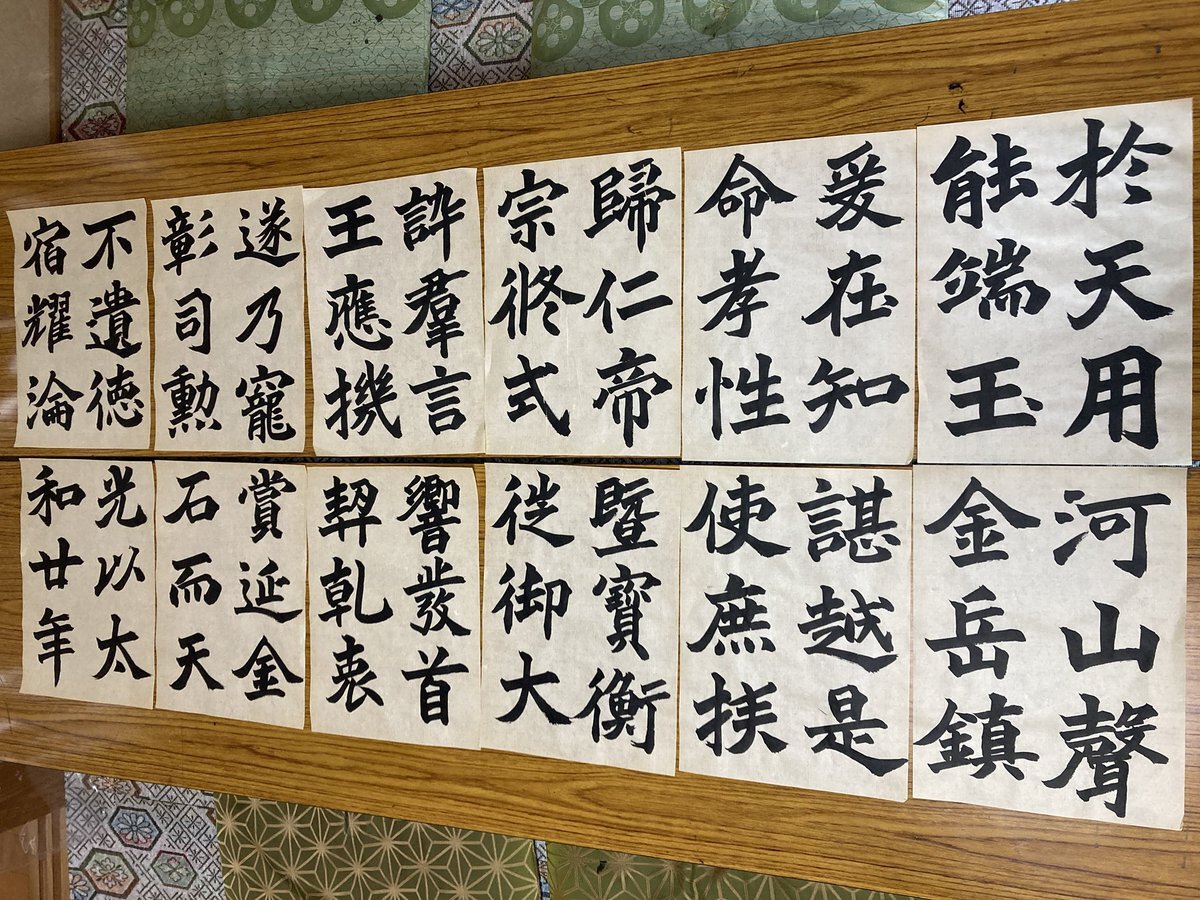 於天用
能端玉
河山聲
金岳鎮
爰在知
命孝性
諶越是
使庶族
歸仁帝
宗攸式
暨寶衡
徙御大
訊羣言
王應機
響發首
契乾衷
遂乃寵
彰司勳
賞延金
石而天
不遺徳
宿耀淪
光以太
和廿年